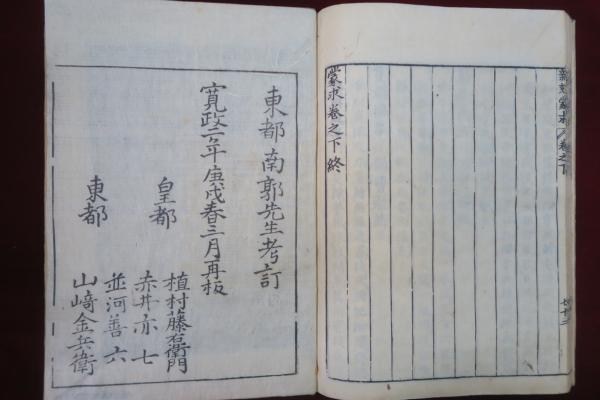 新刻蒙求 卷之下
七十三
蒙求卷之下終
東都南郭先生考訂
寛政二年庚戌春三月再板
皇都
植村藤右衛門
赤井亦七
並河善六
東都
山﨑金兵衛